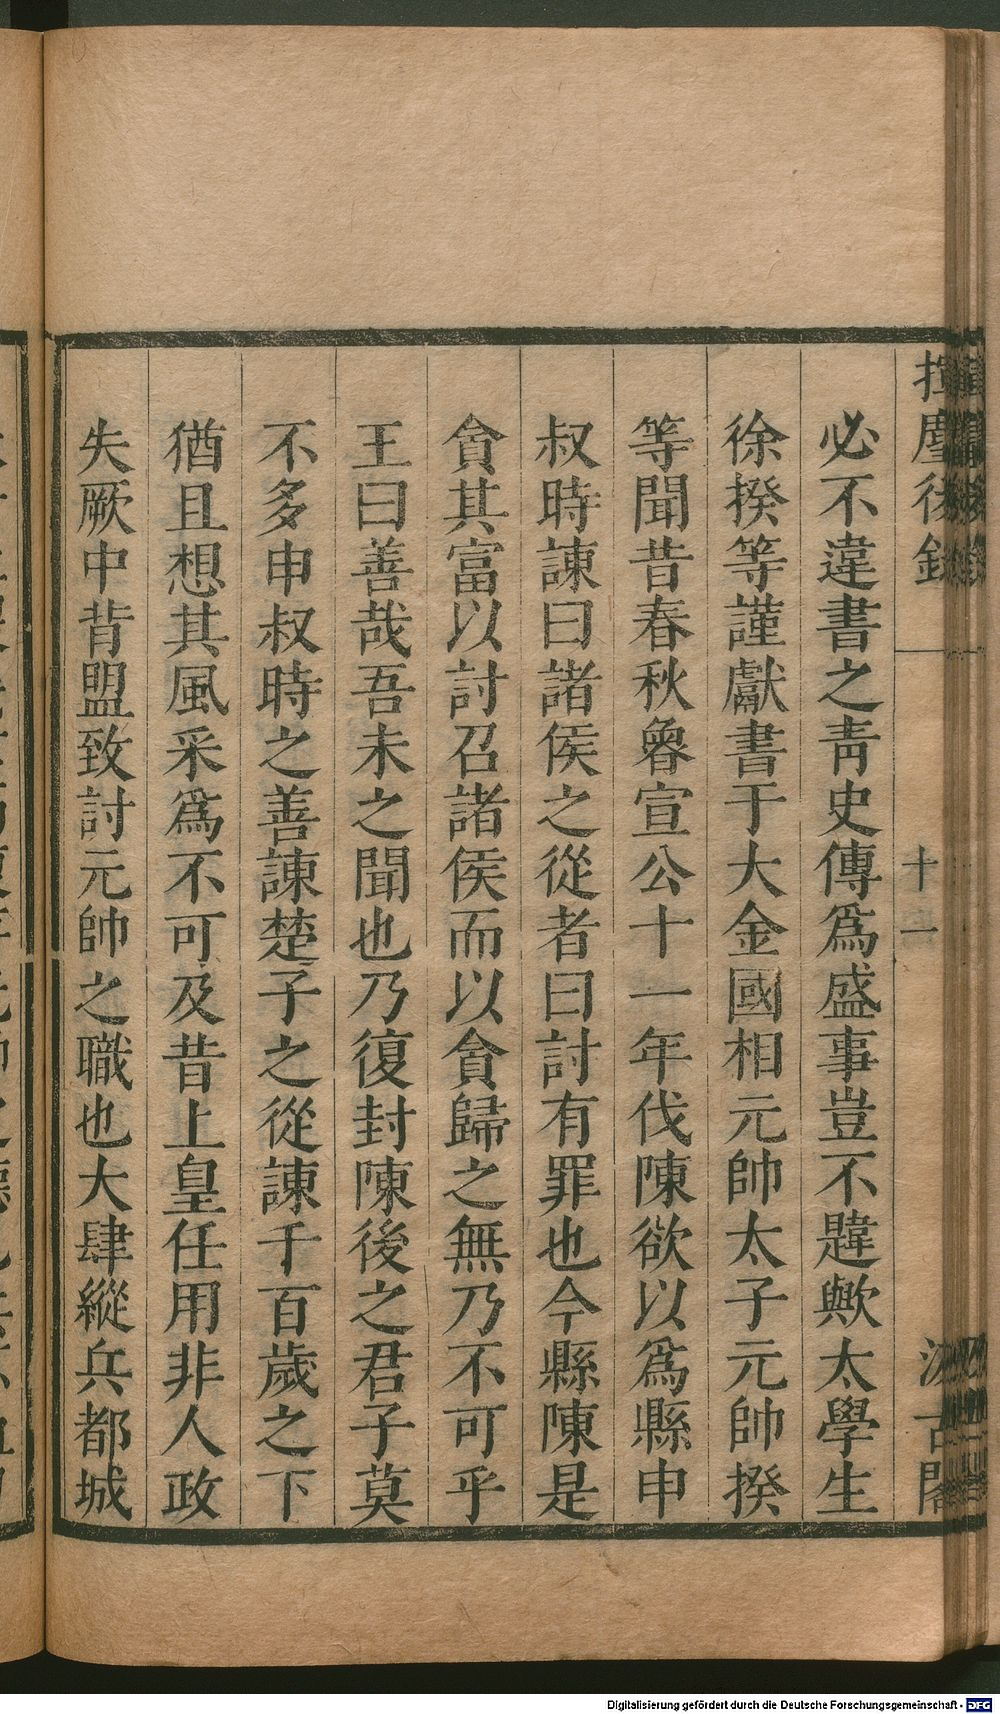 揮麈後錄
十一
汲古閣
必不違書之靑史傳爲盛事豈不韙歟太學生
徐揆等謹獻書于大金國相元帥太子元帥揆
等聞昔春秋魯宣公十一年伐陳欲以爲縣申
叔時諫曰諸侯之從者曰討有罪也今縣陳是
貪其富以討召諸侯而以貪歸之無乃不可乎
王曰善哉吾未之聞也乃復封陳後之君子莫
不多申叔時之善諫楚子之從諫千百歲之下
猶且想其風采爲不可及昔上皇任用非人政
失厥中背盟致討元帥之職也大肆縱兵都城
Digitalisierung gefördert durch die Deutsche Forschungsgemeinschaft - DFG